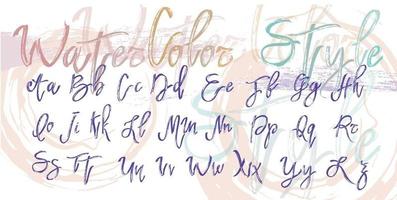 WaterColor Style
Aa Bb Cc Dd Ee Ff Gg Hh
Ii Jj Kk Ll Mm Nn Oo Pp Qq Rr
Ss Tt Uu Vv Ww Xx Yy Zz